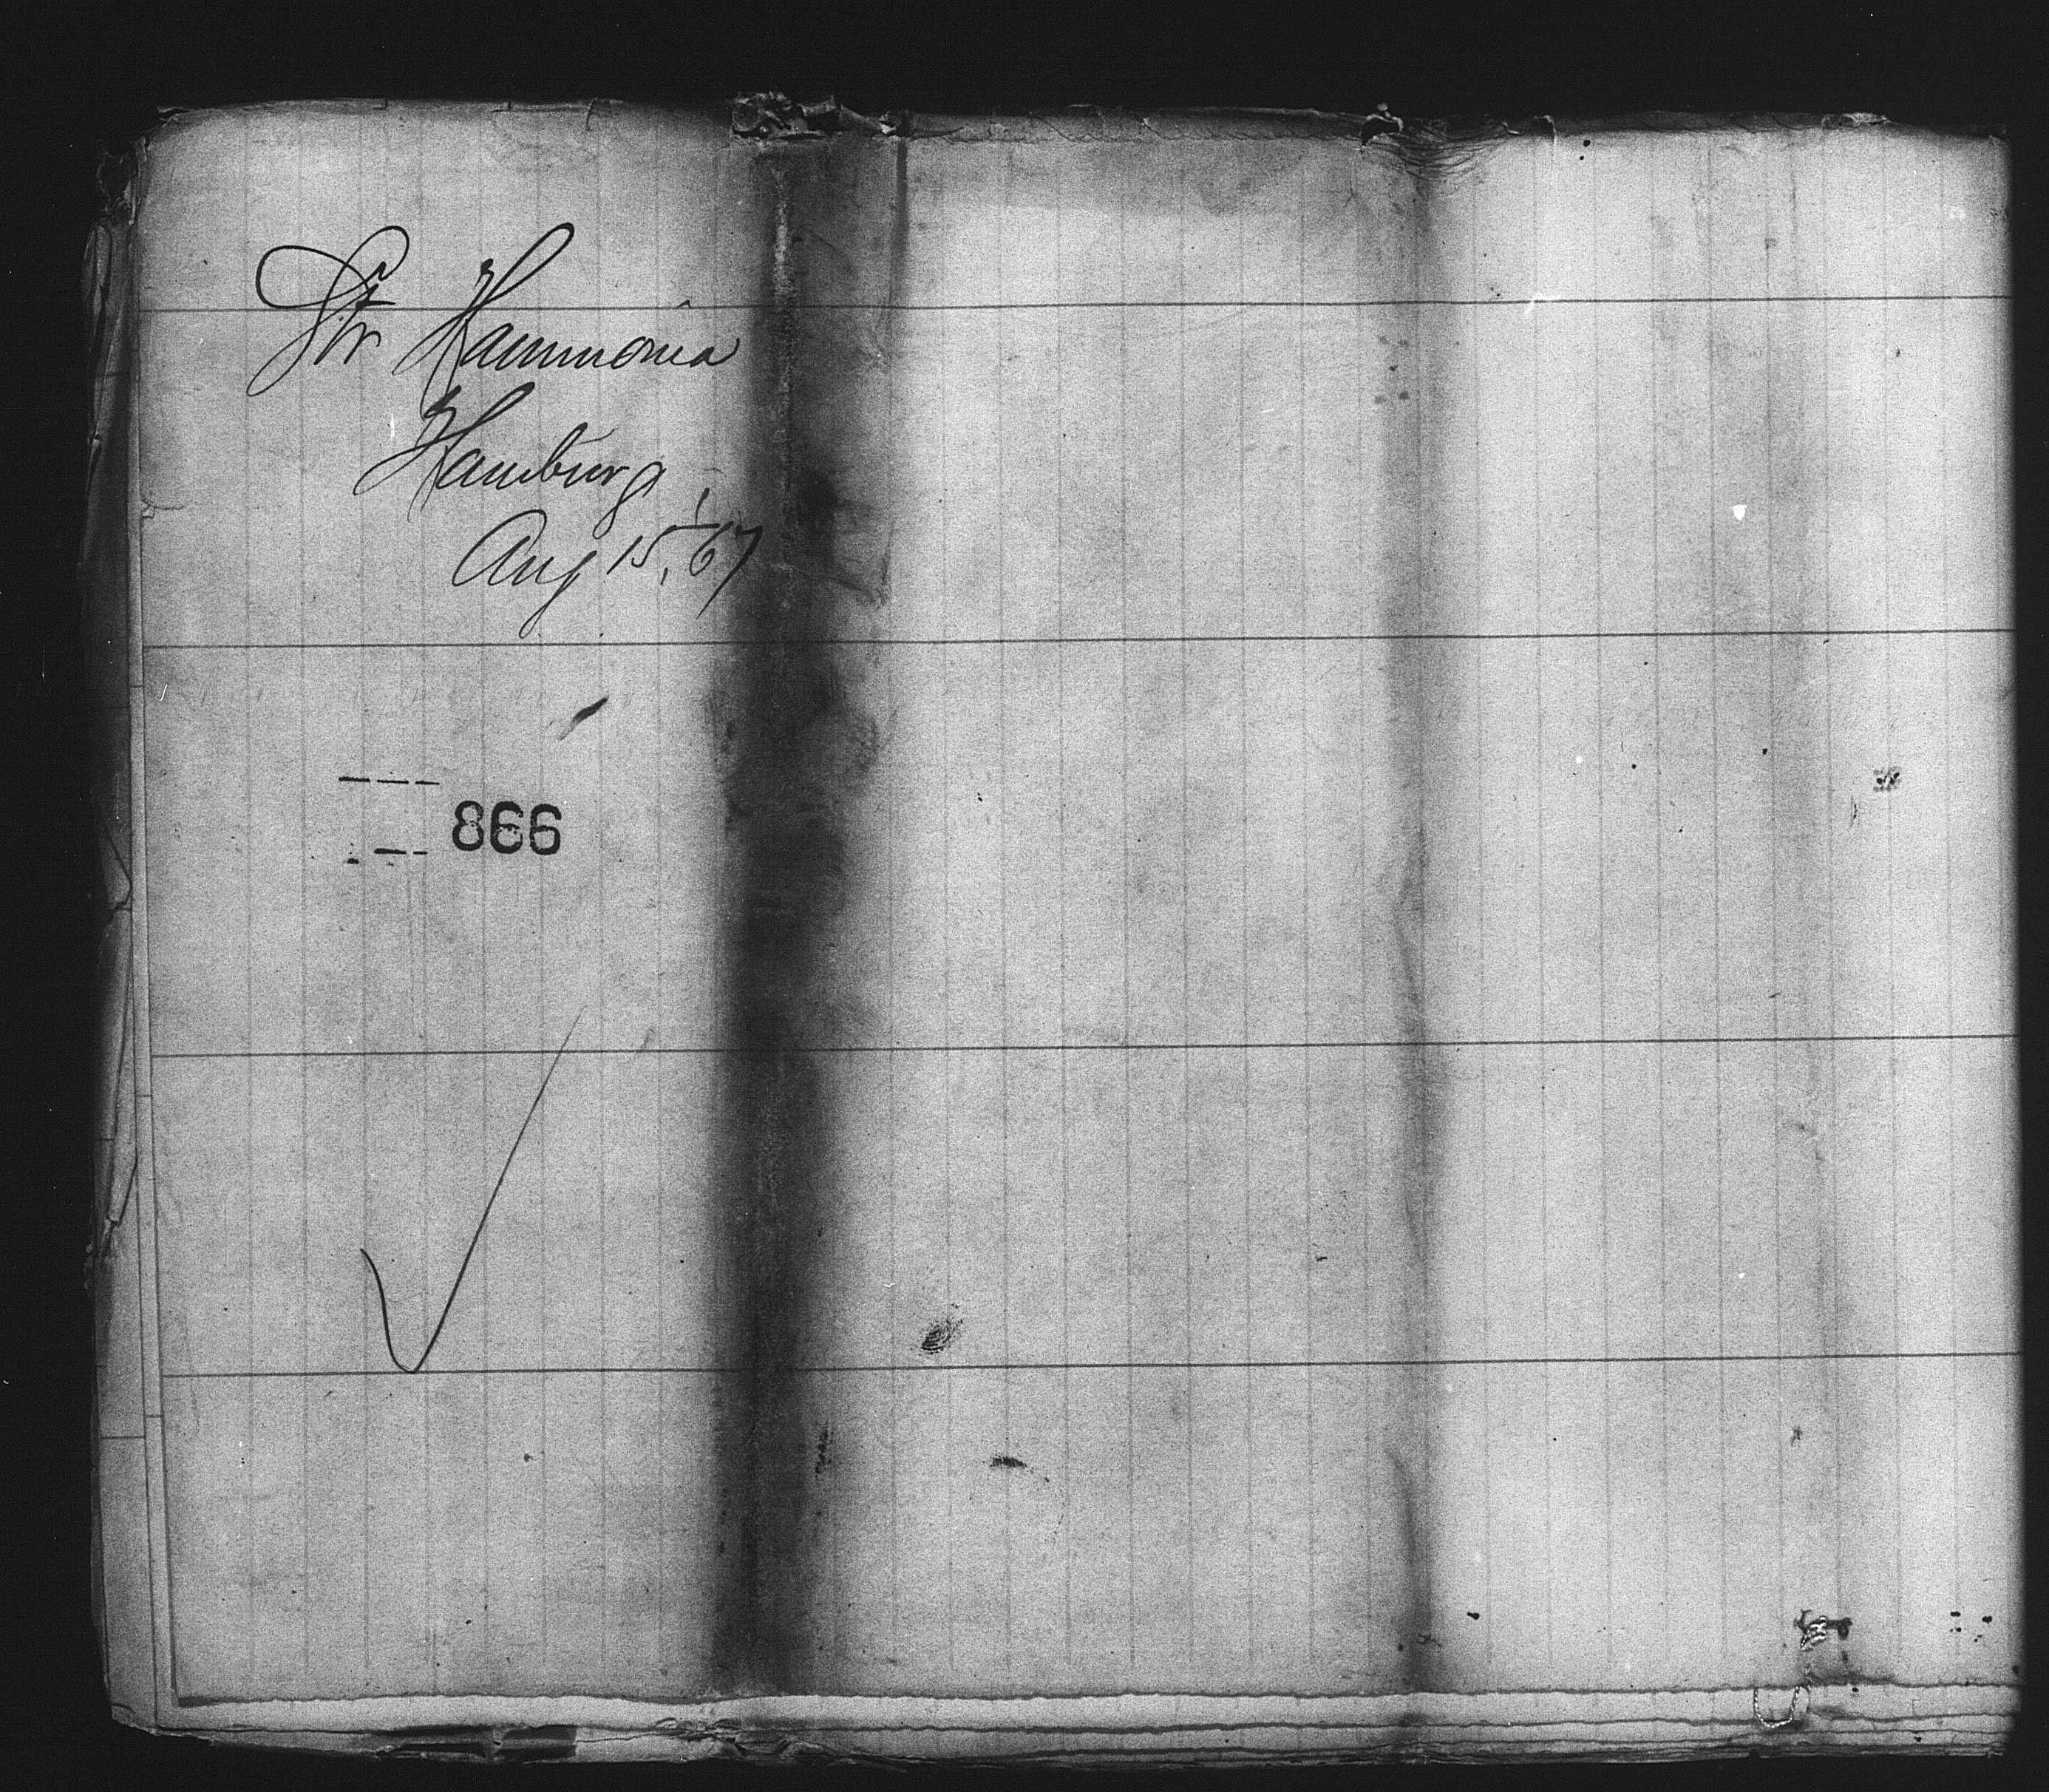 Str Hammonia
Hamburg
Aug 15, '67
866